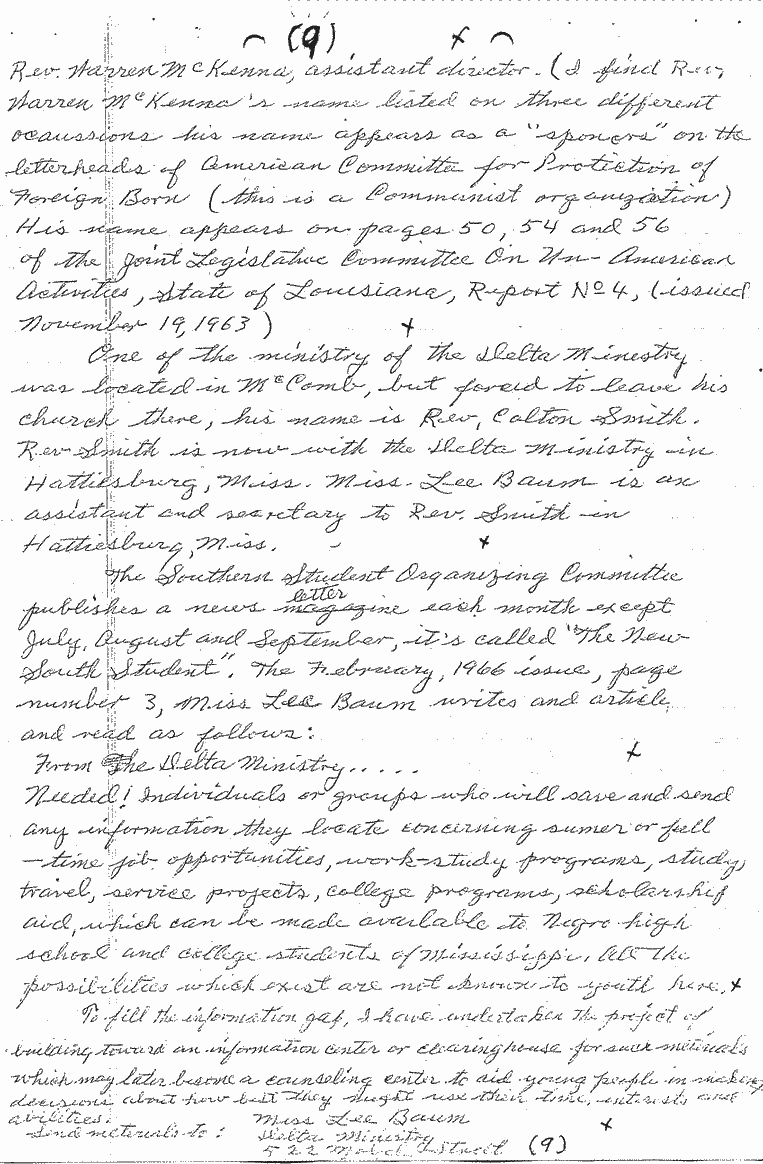 (9)
Rev. Warren McKenna, assistant director. (I find Rev,
Warren McKenna's name listed on three different
ocaussions his name appears as a "sponers" on the
letterheads of American Committe for Protection of
Foreign Born (this is a Communist organization)
His name appears on pages 50, 54 and 56
of the Joint Legislative Committee On Un-American
Activities, State of Louisiana, Report No 4, (issued
November 19, 1963)
One of the ministry of the Delta Minestry
was located in McComb, but forced to leave his
church there, his name is Rev, Colton Smith.
Rev Smith is now with the Delta Ministry in
Hattiesburg, Miss. Miss. Lee Baum is an
assistant and secretary to Rev. Smith in
Hattiesburg, Miss.
The Southern Student Organizing Committee
letter
publishes a news magazine each month except
July, August and September, it's called "The New
South Student". The February, 1966 issue, page
number 3, Miss Lee Baum writes and article
and read as follows:
From The Delta Ministry.....
Needed! Individuals or groups who will save and send
any information they locate concerning sumer or full
-time job opportunities, work-study programs, study,
travel, service projects, college programs, scholarship
aid, which can be made available to Negro high
school and college students of Mississippi. All the
possibilities which exist are not known to youth here.
To fill the information gap, I have undertaken the project of
building toward an information center or clearinghouse for such meterials
which may later become a counseling center to aid young people in making
decisions about how best they might use their time, interests and
abilities.
Send meterials to: Miss Lee Baum
Delta Ministry
522 Street
(9)